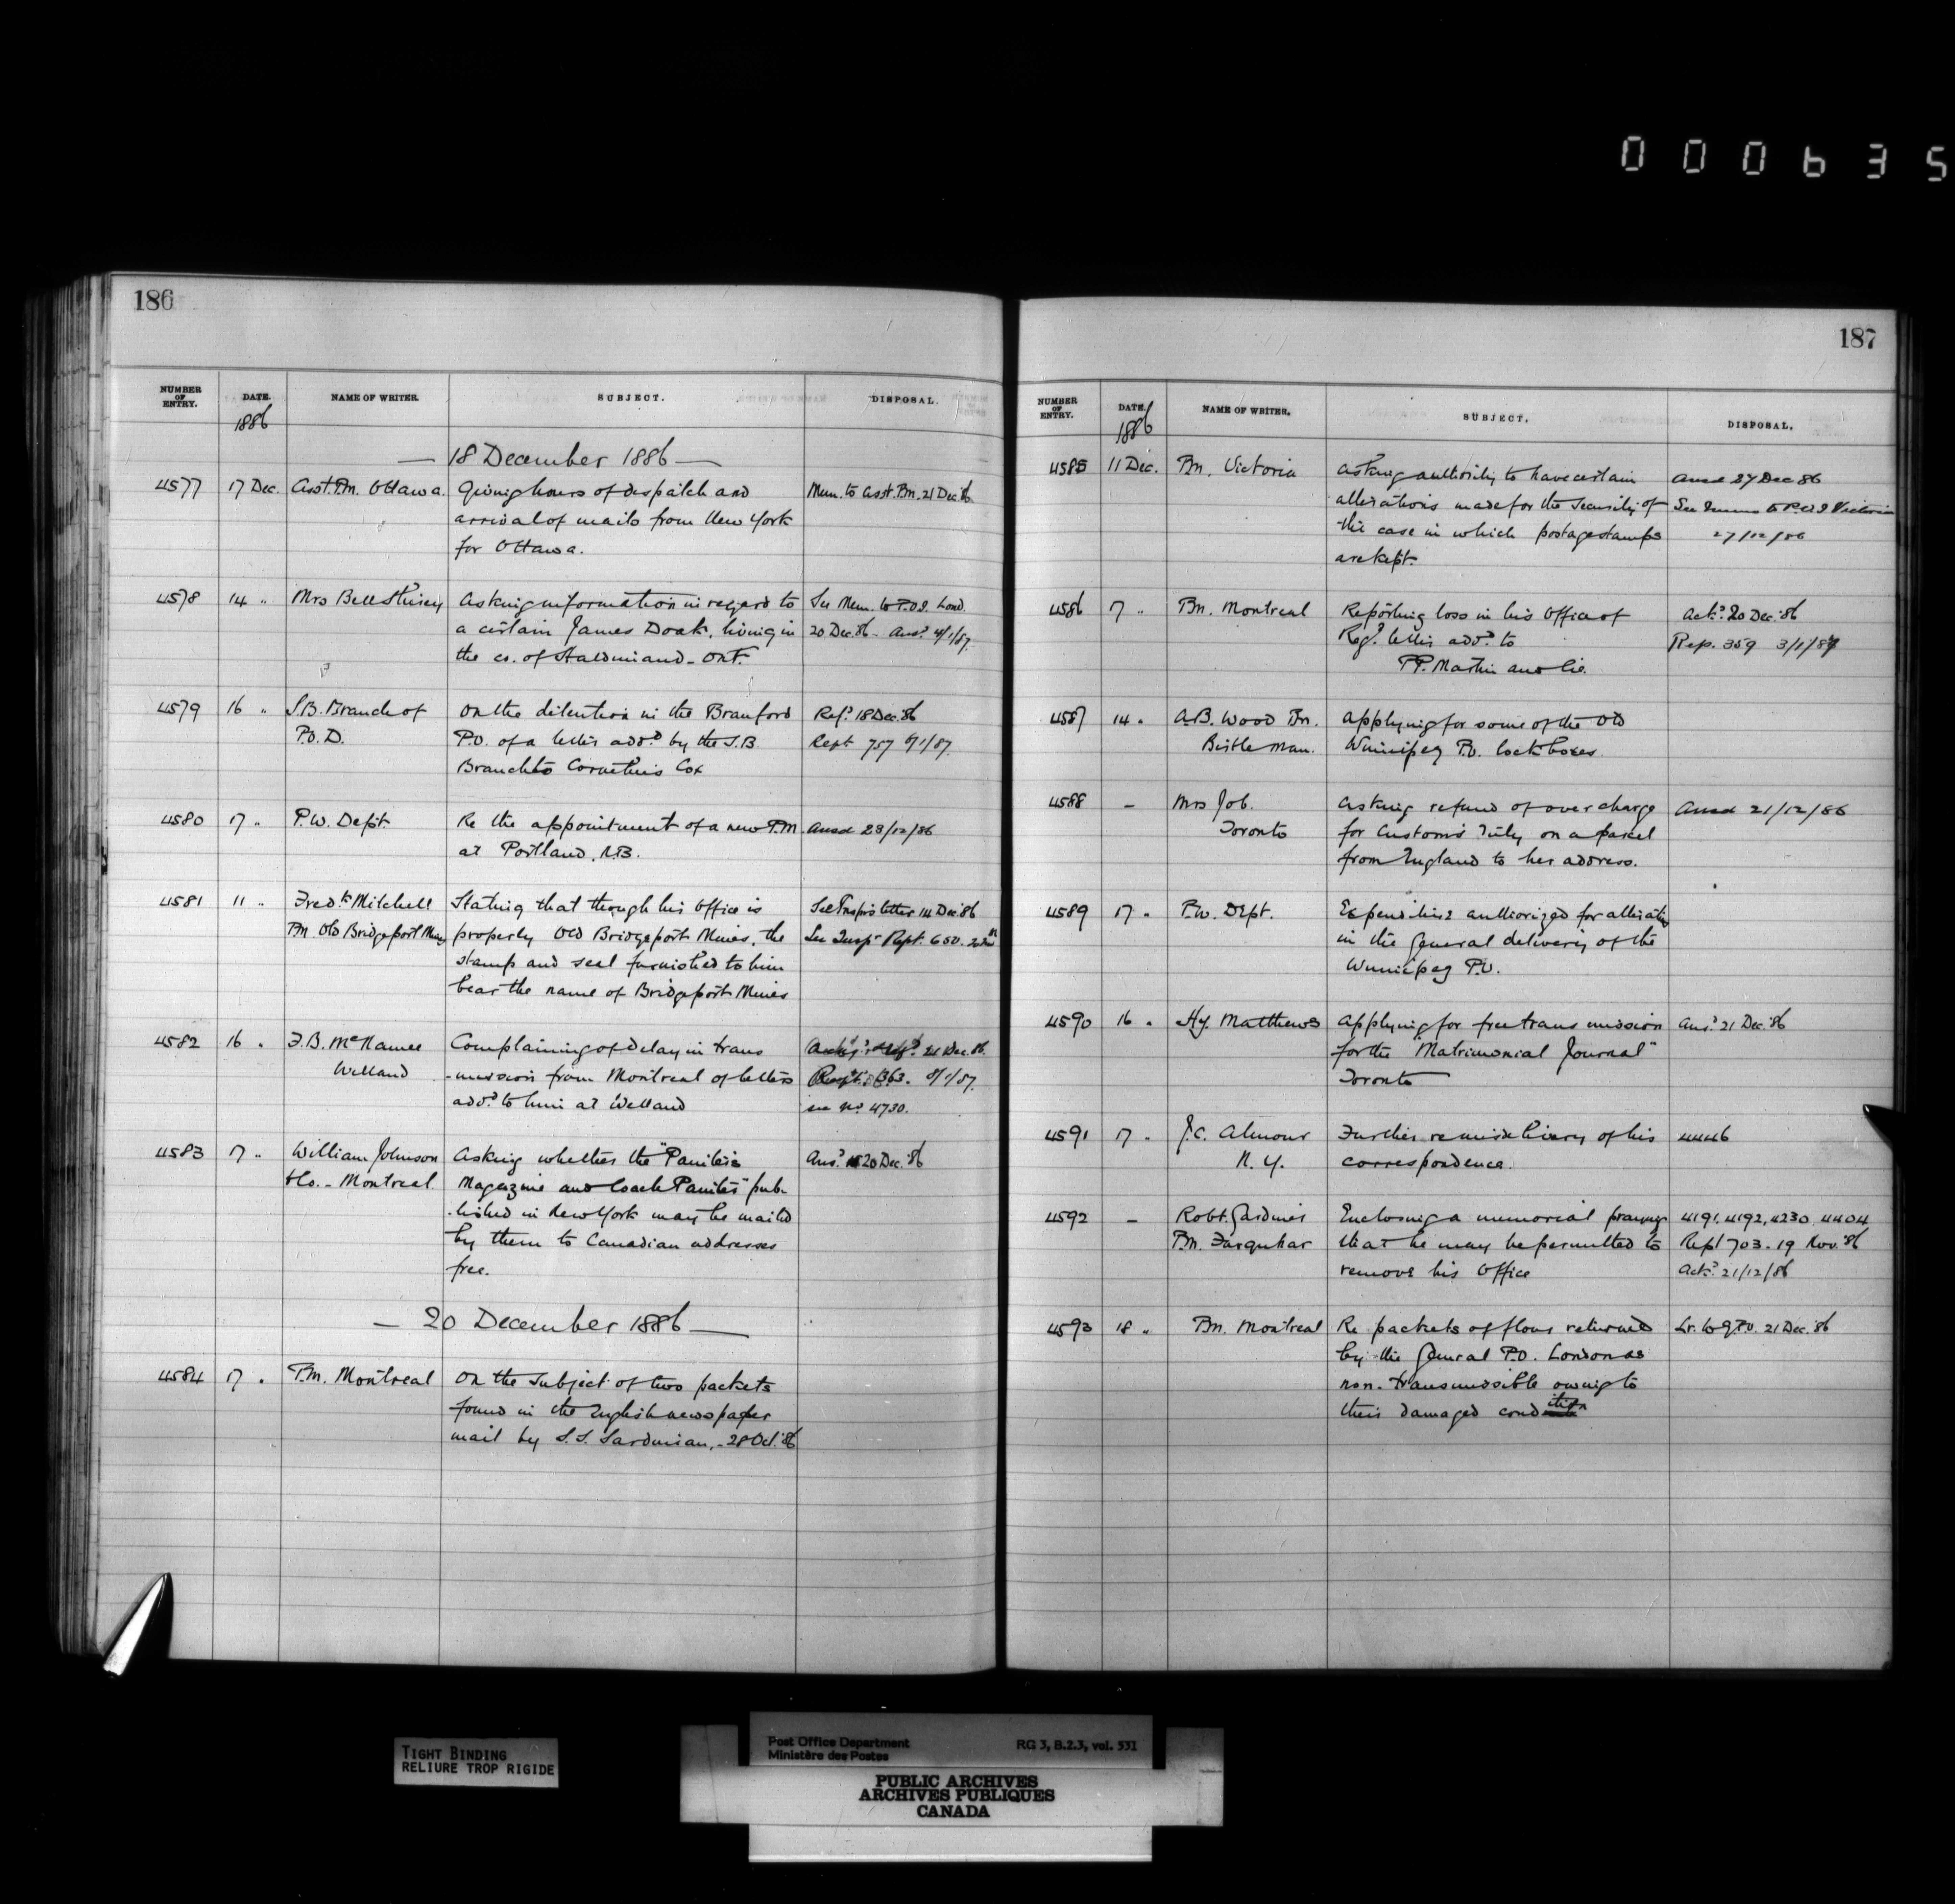 000635
186
NUMBER OF ENTRY. DATE. NAME OF WRITER. SUBJECT. DISPOSAL.
1886
— 18 December 1886 —
4577 17 Dec. Asst. P.M. Ottawa. Giving hours of despatch and Mem. to Asst. P.M. 21 Dec. '86
arrival of mails from New York
for Ottawa.
4578 14 " Mrs Bell Asking information in regard to See Mem. to P.O.I. Lond.
a certain James Doak, living in 20 Dec. '86 - Ansd. 4/1/87.
the co. of Haldimand - Ont.
4579 16 " S.B. Branch of On the detention in the Branford Refd. 18 Dec. '86
P.O.D. P.O. of a letter addd. by the S.B. Rept 757 6/1/87.
Branch to Cornelius Cox
4580 17 " P.W. Dept. Re the appointment of a new P.M. Ansd 23/12/86
at Portland, N.B.
4581 11 " Fredk. Mitchell Stating that though his Office is See Insprs letter 14 Dec '86
P.M. Old Bridgeport Mines properly Old Bridgeport Mines, the See Inspr Rept. 650.
stamp and seal furnished to him
bear the name of Bridgeport Mines
4582 16 " F.B. McNamee Complaining of delay in trans 21 Dec. 86.
Welland -mission from Montreal of letters Rept. 363. 8/1/87.
addd. to him at Welland see No. 4730.
4583 17 " William Johnson Asking whether the "Painters Ansd. 20 Dec. '86
& Co. - Montreal Magazine and Coach Painter" pub-
-lished in New York may be mailed
by them to Canadian addresses
free.
— 20 December 1886 —
4584 17 " P.M. Montreal On the subject of two packets
found in the English newspaper
mail by S.S. Sardinian, - 28 Oct. '86
187
NUMBER OF ENTRY. DATE. NAME OF WRITER. SUBJECT. DISPOSAL.
1886
4585 11 Dec. P.M. Victoria Asking authority to have certain Ansd 27 Dec 86
alterations made for the security of See Memo to P.O.I Victoria
the case in which postage stamps 27/12/86
are kept.
4586 17 " P.M. Montreal Reporting loss in his Office of Ackd. 20 Dec. '86
Regd. letter addd. to Rep. 359 3/1/87
P.P. Martin and Co.
4587 14 " A.B. Wood P.M. Applying for some of the old
Birtle Man. Winnipeg P.O. lock boxes.
4588 — Mrs Job. Asking refund of over charge Ansd 21/12/86
Toronto for Customs duty on a parcel
from England to her address.
4589 17 " P.W. Dept. Expenditure authorized for alterations
in the General delivery of the
Winnipeg P.O.
4590 16 " Hy. Matthews Applying for free transmission Ansd. 21 Dec. '86
for the "Matrimonial Journal"
Toronto
4591 17 " J.C. Almour Further re misdelivery of his 4446
N.Y. correspondence.
4592 — Robt. Gardiner Enclosing a memorial praying 4191, 4192, 4230, 4404
P.M. Farquhar that he may be permitted to Rept 703 - 19 Nov. '86
remove his Office Ackd. 21/12/86
4593 18 " P.M. Montreal Re packets of flour returned Lr. to G.P.O. 21 Dec. '86
by the General P.O. London as
non-transmissible owing to
their damaged condition
TIGHT BINDING
RELIURE TROP RIGIDE
Post Office Department RG 3, B.2.3, vol. 531
Ministère des Postes
PUBLIC ARCHIVES
ARCHIVES PUBLIQUES
CANADA